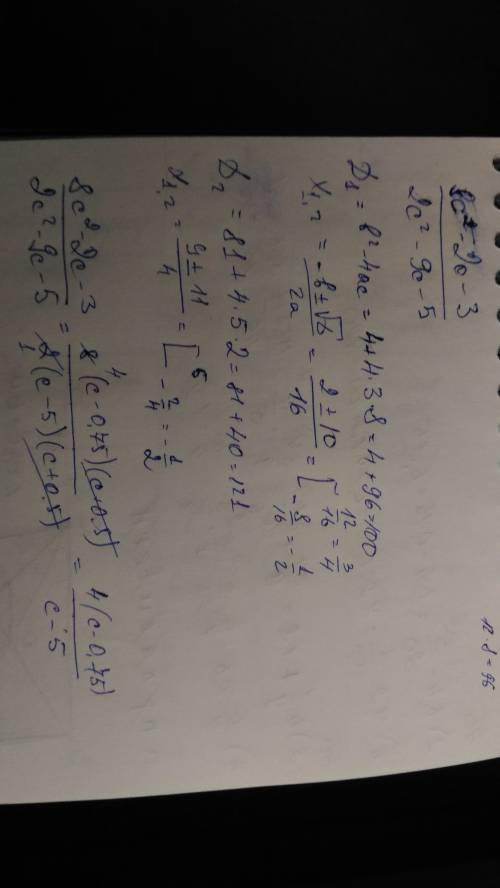 12·8=96
8c²-2c-3 / 2c²-9c-5
D₁ = b²-4ac = 4+4·3·8 = 4+96=100
x₁,₂ = -b±√D / 2a = 2±10 / 16 = [ 12/16 = 3/4
-8/16 = -1/2
D₂ = 81+4·5·2 = 81+40=121
x₁,₂ = 9±11 / 4 = [ 5
-2/4 = -1/2
8c²-2c-3 / 2c²-9c-5 = 8 4 (c-0,75)(c+0.5) / 2 1 (c-5)(c+0.5) = 4(c-0,75) / c-5